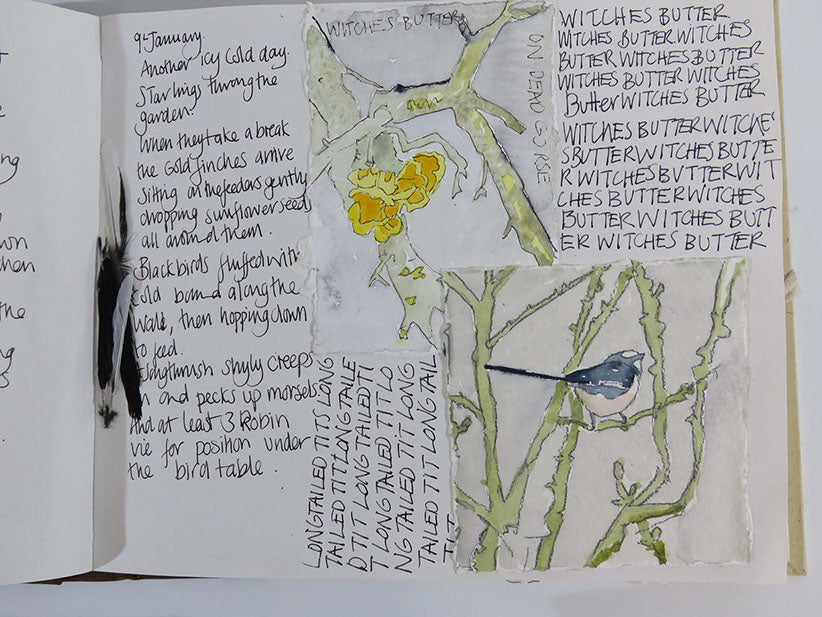 9th January.
Another icy cold day.
Starlings throng the
garden.
When they take a break
the Goldfinches arrive
Sitting on the feeders gently
dropping sunflower seeds
all around them.
Blackbirds fluffed with
cold bound along the
Wall, then hopping down
to feed.
Songthrush shyly creeps
in and pecks up morsels
And at least 3 Robin
vie for position under
the bird table.
WITCHES BUTTER
ON DEAD GORSE
WITCHES BUTTER
WITCHES BUTTER WITCHES
BUTTER WITCHES BUTTER
WITCHES BUTTER WITCHES
Butter WITCHES BUTTER
WITCHES BUTTER WITCHE
S BUTTER WITCHES BUTTE
R WITCHES BUTTER WIT
CHES BUTTER WITCHES
BUTTER WITCHES BUTT
ER WITCHES BUTTER
LONGTAILED TITS LONG
TAILED TIT LONG TAILE
D TIT LONG TAILED TI
T LONG TAILED TIT LO
NG TAILED TIT LONG
TAILED TIT LONG TAIL